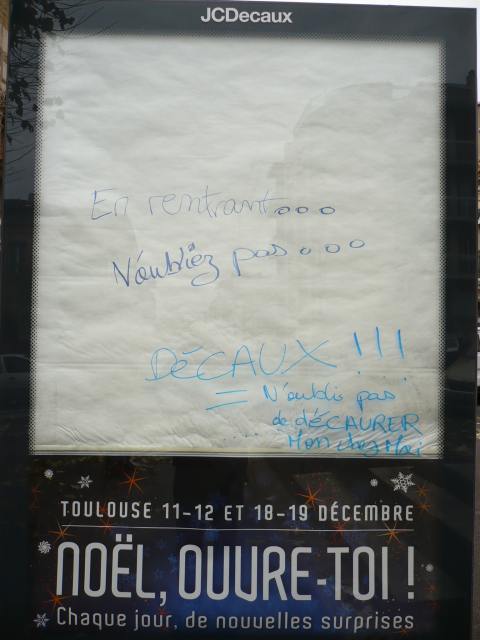 JCDecaux
En rentrant...
N'oubliez pas....
DéCAUX !!!
= N'oublis pas
... de déCAURER
Mon chez Moi
TOULOUSE 11-12 ET 18-19 DÉCEMBRE
NOËL, OUVRE-TOI !
Chaque jour, de nouvelles surprises